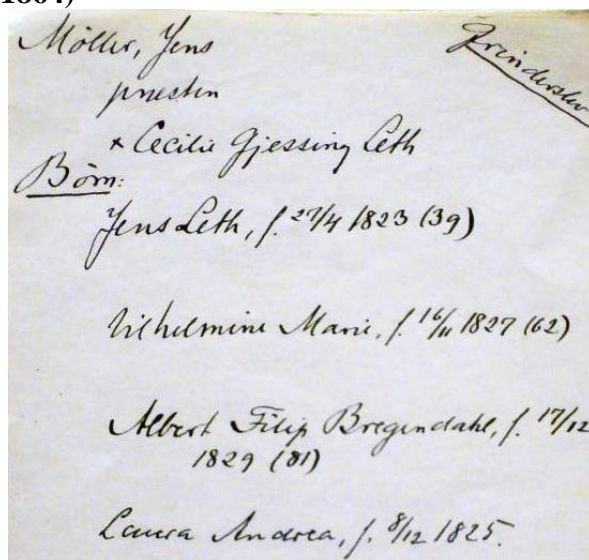 1864)
Möller, Jens
Grinderslev
præsten
× Cecilie Gjessing Leth
Börn:
Jens Leth, f. 27/4 1823 (39)
Vilhelmine Marie, f. 16/11 1827 (62)
Albert Filip Bregendahl, f. 17/12
1829 (81)
Laura Andrea, f. 8/12 1825.